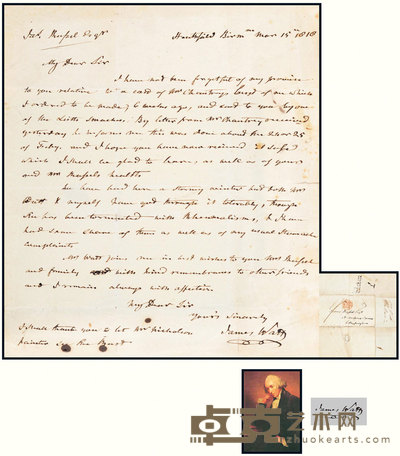 Heathfield Birm^m Mar 15th 1818
My Dear Sir
I have not been forgetful of my promise
to you relative to a cast of Mr Chantreys bust of me which
I ordered to be made 6 weeks ago, and sent to you by one
of the Leith Smacks. By letter from Mr Chantrey received
yesterday he informs me this was done about the 24 or 25
of Feby. and I hope you have now received it safe
which I shall be glad to learn, as well as of yours
and Mrs health
we have had here a stormy winter and both Mrs
Watt & myself have got through it tolerably, though
She has been tormented with Rheumatisms, & I have
had some share of them as well as of my usual Stomach
complaints
Mrs Watt joins me in best wishes to you Mrs
and family with kind remembrances to other friends
and I remain always with affection
My Dear Sir
Yours Sincerely
James Watt
I shall thank you to let Mr Nicholson
painter see the Bust
James Watt
卓克艺术网
zhuokearts.com